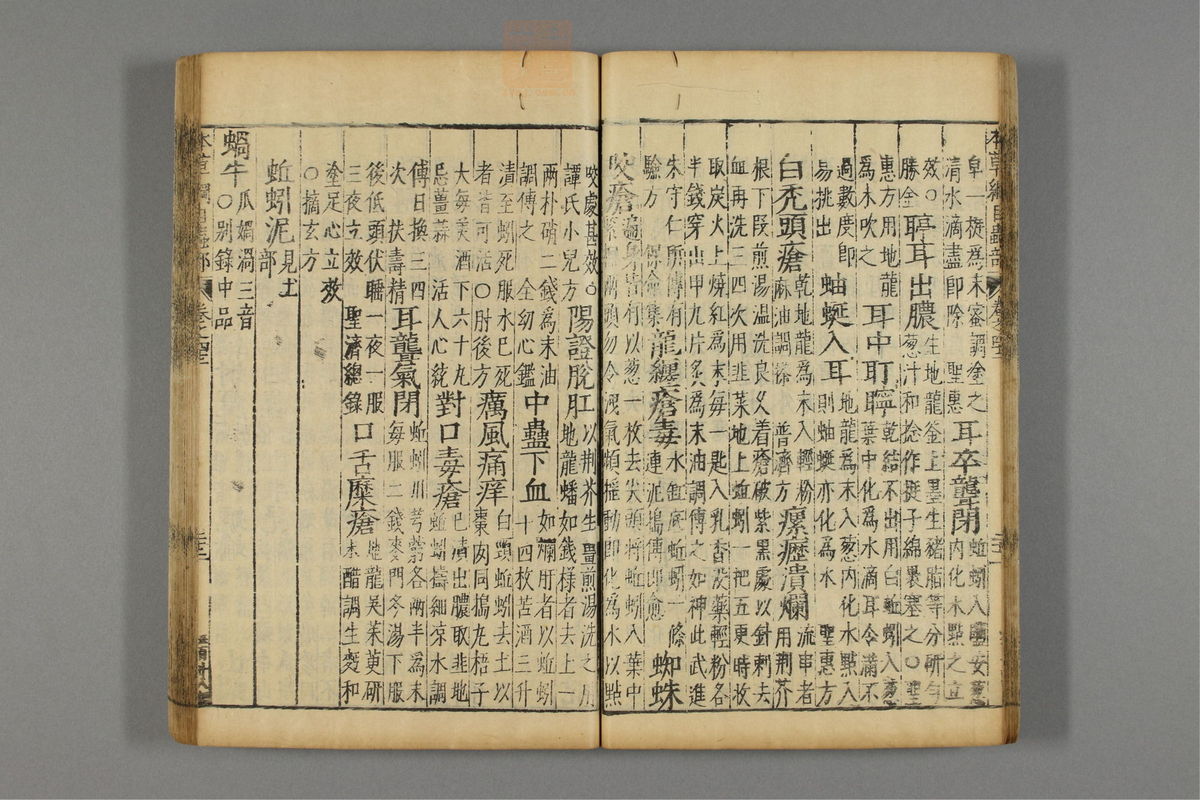 本草綱目蟲部
皁一挺爲末蜜調塗之
清水滴盡即除 聖惠
耳卒聾閉
蚯蚓入鹽安葱
內化水點之立
效○
勝金
聤耳出膿
生地龍釜上墨生豬脂等分研勻
葱汁和捻作挺子綿裹塞之○聖
惠方用地龍
爲末吹之
耳中耵聹
乾結不出用白蚯蚓入葱
葉中化爲水滴耳令滿不
過數度即
易挑出
蚰蜒入耳
地龍爲末入葱內化水點入
則蚰蜒亦化爲水 聖惠方
白禿頭瘡
乾地龍爲末入輕粉
麻油調搽 普濟方
瘰癧潰爛
流串者
用荆芥
根下段煎湯温洗良久着瘡破紫黑處以針刺去
血再洗三四次用韭菜地上蚯蚓一把五更時收
取炭火上燒紅爲末每一匙入乳香沒藥輕粉各
半錢穿山甲九片炙爲末油調傅之如神此武進
朱守仁所傳有
驗方 保命集
龍纏瘡毒
水缸底蚯蚓一條
連泥搗傅即愈
蜘蛛
咬瘡
遍身皆有以葱一枚去尖頭將蚯蚓入葉中
緊捏兩頭勿令洩氣頻摇動即化爲水以點
咬處甚效○
譚氏小兒方
陽證脫肛
以荆芥生薑煎湯洗之用
地龍蟠如錢様者去土一
兩朴硝二錢爲末油
調傅之 全幼心鑑
中蠱下血
如爛肝者以蚯蚓
十四枚苦酒三升
漬至蚓死服水已死
者皆可活○肘後方
癘風痛痒
白頸蚯蚓去土以
棗肉同搗丸梧子
大每美酒下六十丸
忌薑蒜 活人心統
對口毒瘡
已潰出膿取韭地
蚯蚓搗細凉水調
傅日換三四
次 扶壽精
耳聾氣閉
蚯蚓川芎藭各兩半爲末
每服二錢麥門冬湯下服
後低頭伏睡一夜一服
三夜立效 聖濟總錄
口舌糜瘡
地龍吳茱萸研
末醋調生麫和
塗足心立效
○摘玄方
蚯蚓泥
見土
部
蝸牛
瓜媧渦三音
○別錄中品
本草綱目蟲部